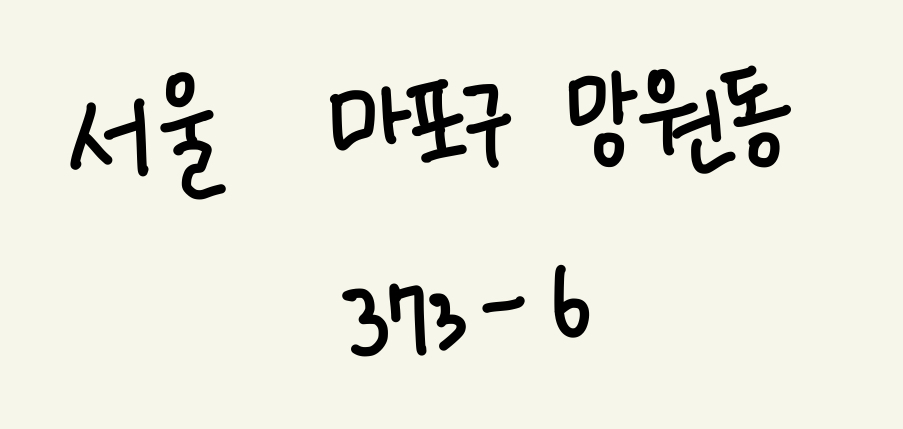 서울 마포구 망원동
373-6